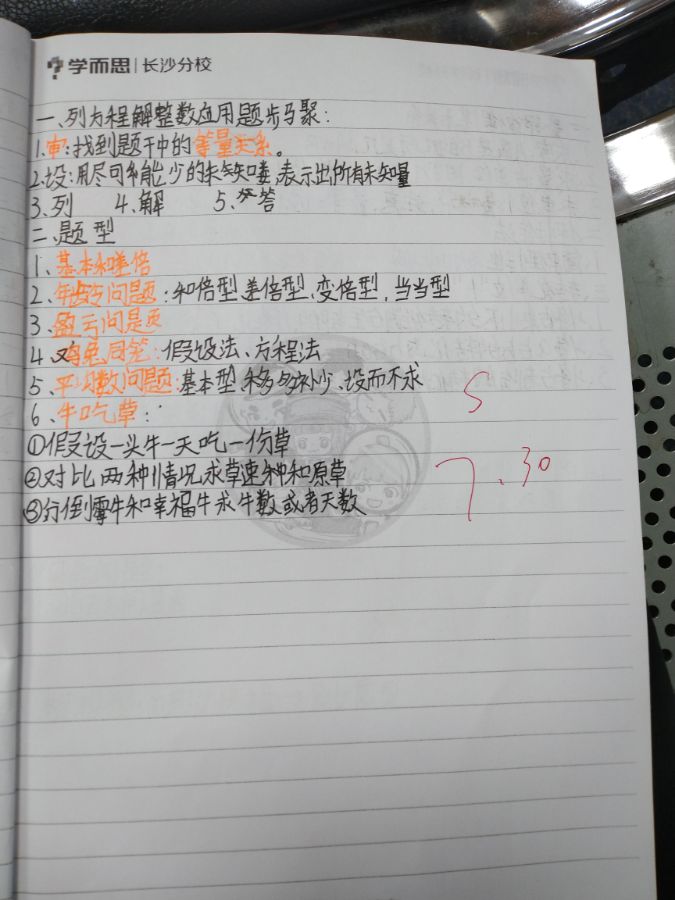 学而思 | 长沙分校
一、列方程解整数应用题步骤：
1.审：找到题干中的等量关系。
2.设：用尽可能少的未知数喽，表示出所有未知量
3.列 4.解 5.答
二、题型
1、基本和差倍
2、年龄问题：和倍型、差倍型、变倍型，当当型
3、盈亏问题
4、鸡兔同笼：假设法、方程法
5、平均数问题：基本型、移多补少、设而不求
6、牛吃草：
①假设一头牛一天吃一份草
②对比两种情况求草速和原草
③分倒霉牛和幸福牛求牛数或者天数
S
7.30